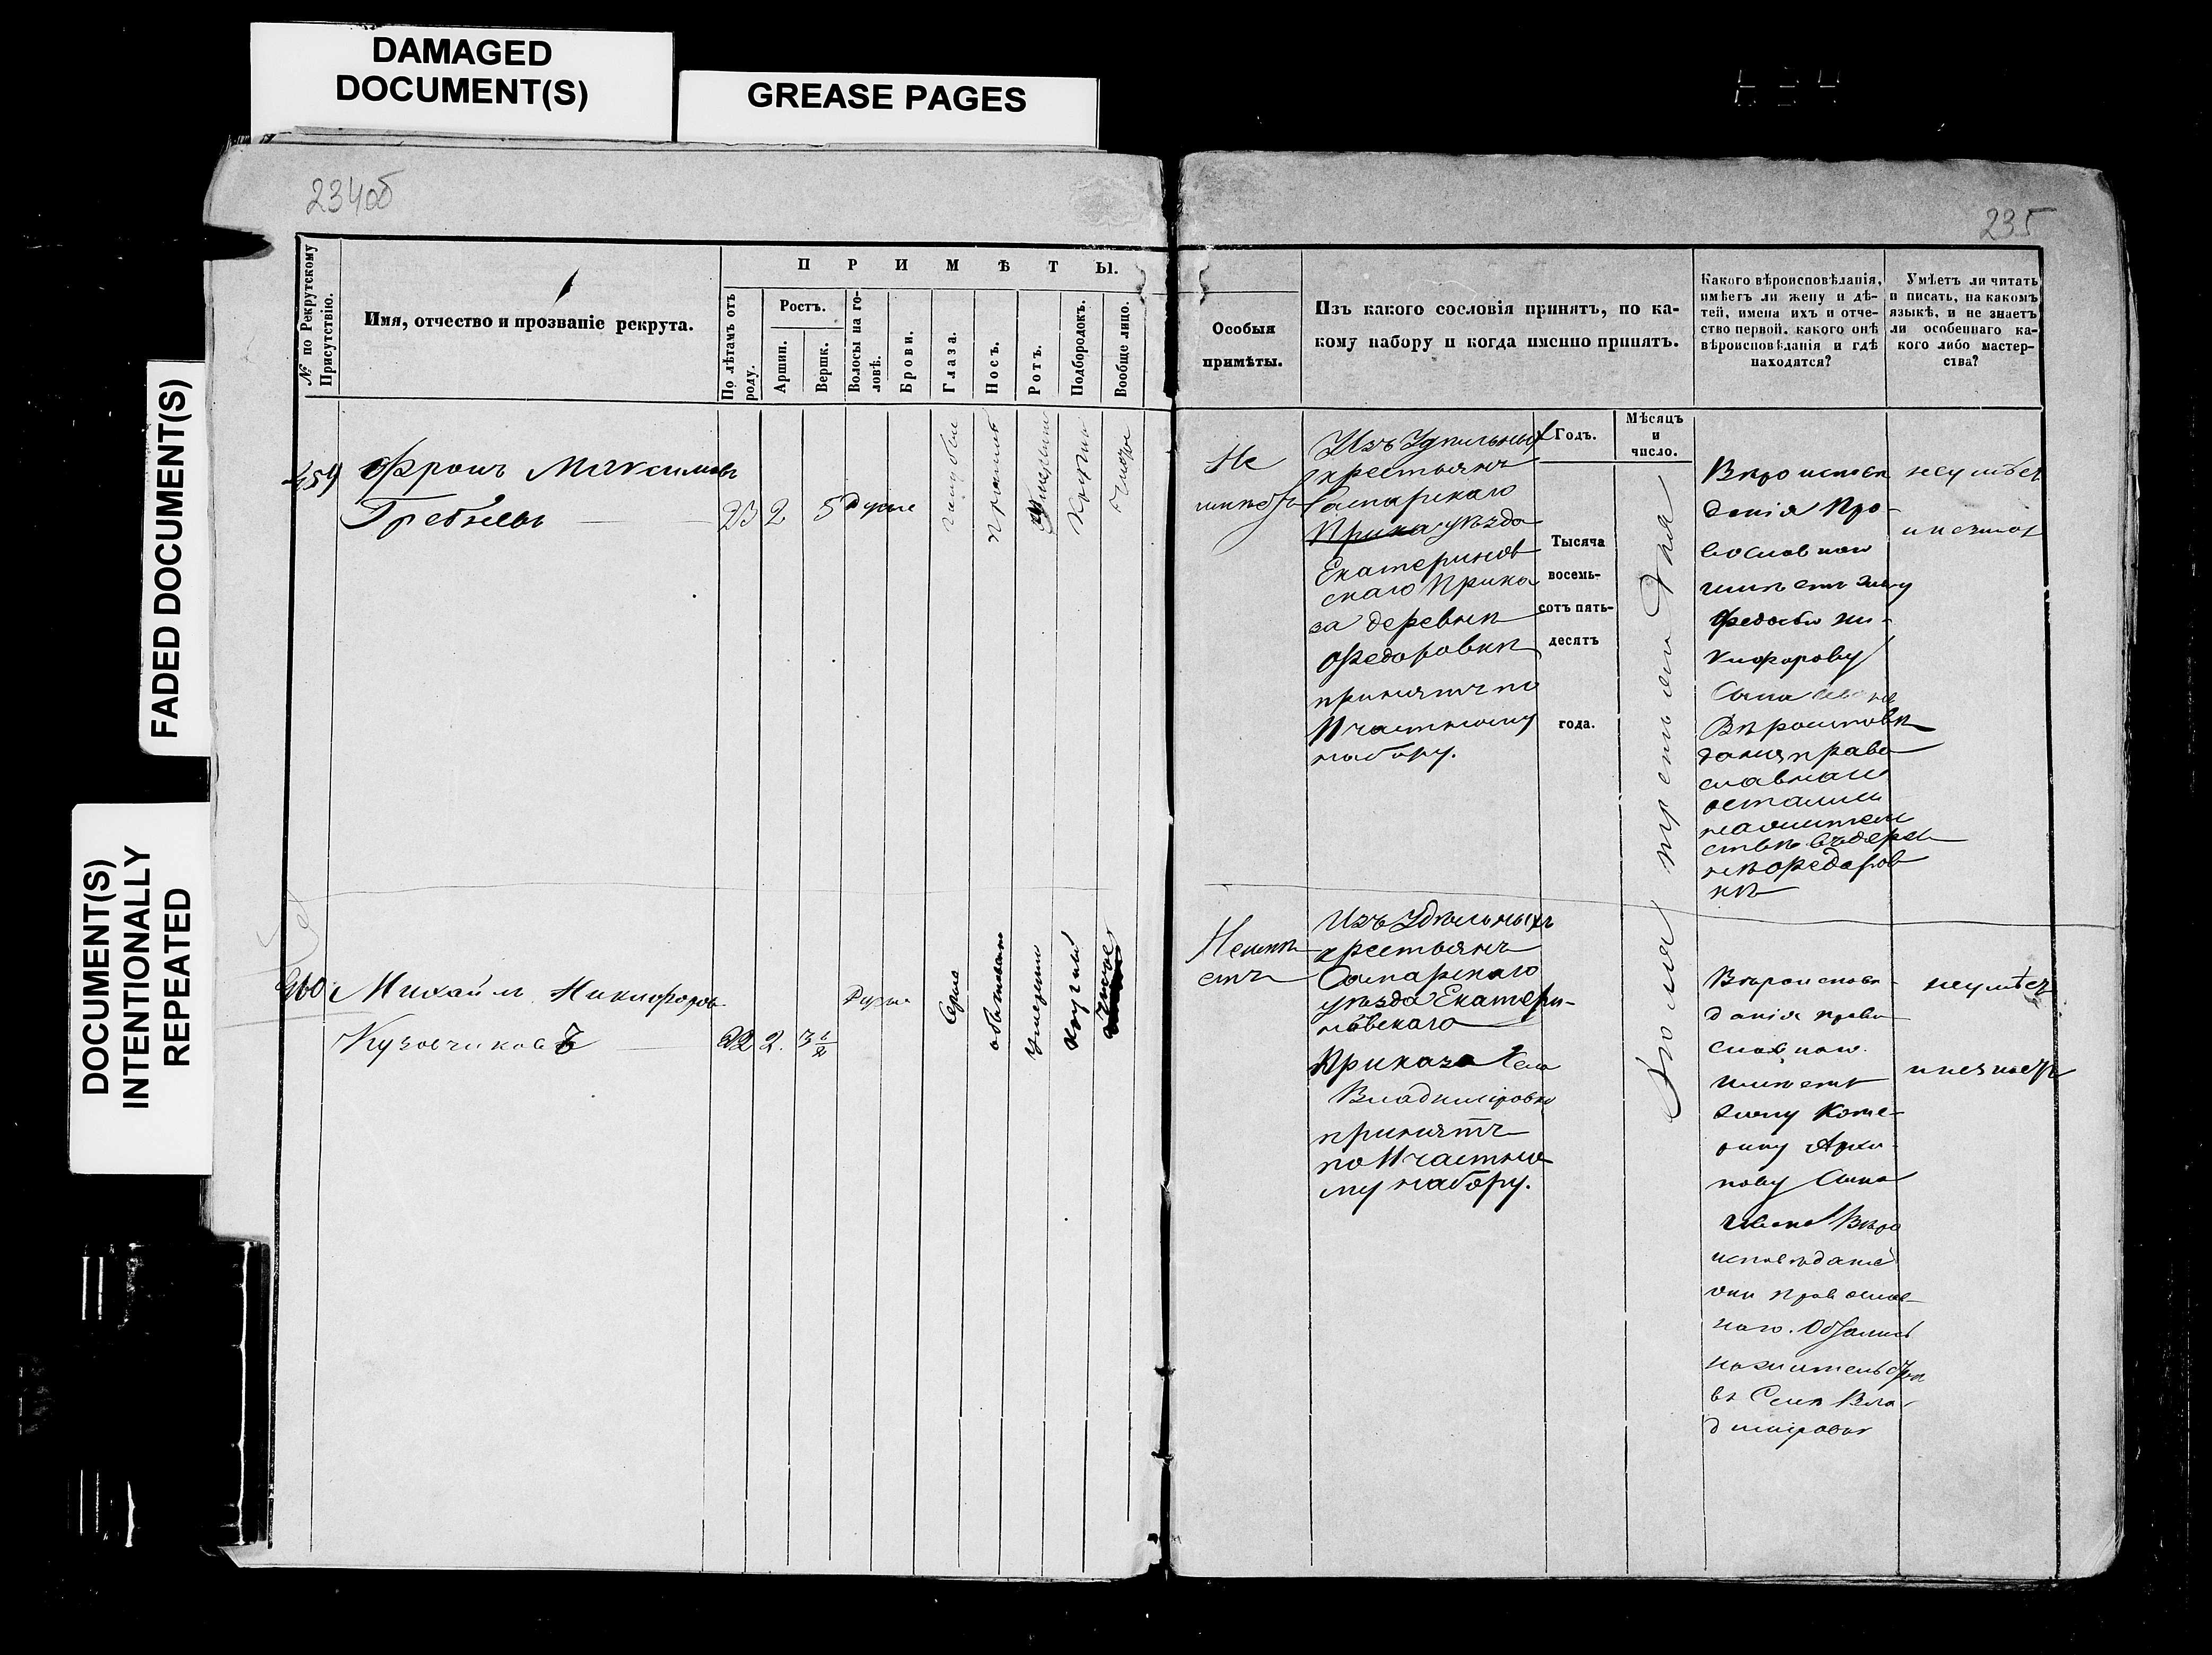 DAMAGED
DOCUMENT(S)
GREASE PAGES
FADED DOCUMENT(S)
DOCUMENT(S)
INTENTIONALLY
REPEATED
234об
235
№ по Рекрутскому
Присутствію.
Имя, отчество и прозваніе рекрута.
ПРИМѢТЫ.
По лѣтамъ отъ
роду.
Ростъ.
Аршин.
Вершк.
Волосы на го-
ловѣ.
Брови.
Глаза.
Носъ.
Ротъ.
Подбородокъ.
Вообще лицо.
Особыя
примѣты.
Изъ какого сословія принятъ, по ка-
кому набору и когда именно принятъ.
Какого вѣроисповѣданія,
имѣетъ ли жену и дѣ-
тей, имена ихъ и отче-
ство первой, какого онѣ
вѣроисповѣданія и гдѣ
находятся?
Умѣетъ ли читать
и писать, на какомъ
языкѣ, и не знаетъ
ли особеннаго ка-
кого либо мастер-
ства?
Годъ.
Мѣсяцъ
и
число.
Тысяча
восемь-
сотъ пять-
десятъ
года.
Іюля третьяго дня
459
Фролъ Максимовъ
Гребневъ
23 2 5 Русые
Не
Изъ Удѣльныхъ
крестьянъ
Самарскаго
Прика уѣзда
Екатеринов
скаго Прика
за деревни
Федоровки
принятъ по
11 частному
набору.
Вѣроисповѣ
данія Пра-
вославнаго
имѣетъ жену
Федосью Ни-
кифорову
Сына
Вѣроисповѣ
данія право
славнаго
остались
на жител
ствѣ въ дерев
нѣ Федоров
кѣ
неумѣетъ
460
Михайла Никифоровъ
Кузовчиковъ
22 2. 3 1/2
Русые
Серые
обыкновен
умеренный
круглый
чистое
Неимѣ
етъ
Изъ Удѣльныхъ
крестьянъ
Самарскаго
уѣзда Екатери-
новскаго
Приказа Села
Владиміровки
принятъ
по 11 частно
му набору.
Вѣроисповѣ-
данія право
славнаго
имѣетъ
жену Кате-
рину Архи-
пову Сына
Ивана Вѣро
исповѣданія
они православ-
наго. Остались
на жительстве
въ Селѣ Вла-
диміровкѣ
неумѣетъ